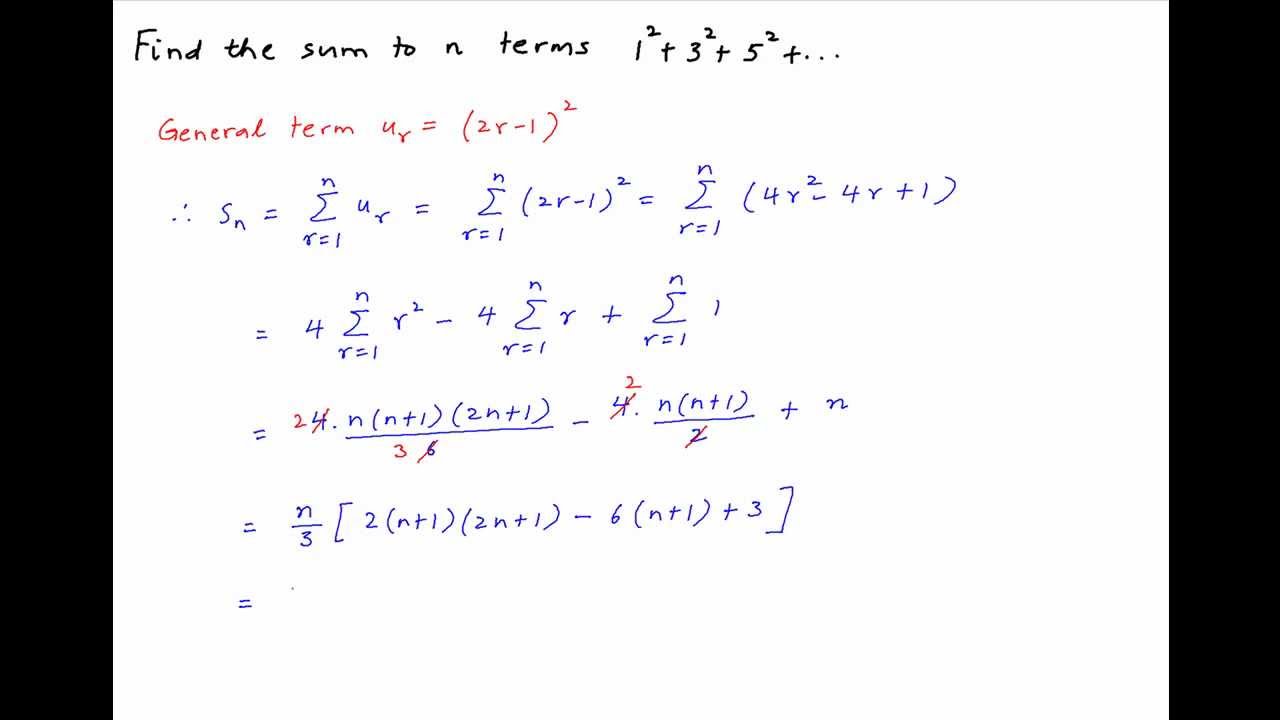 Find the sum to n terms 1² + 3² + 5² + ...
General term uᵣ = (2r-1)²
∴ Sₙ = ∑ᵣ₌₁ⁿ uᵣ = ∑ᵣ₌₁ⁿ (2r-1)² = ∑ᵣ₌₁ⁿ (4r² - 4r + 1)
= 4 ∑ᵣ₌₁ⁿ r² - 4 ∑ᵣ₌₁ⁿ r + ∑ᵣ₌₁ⁿ 1
= 2 4̸ · n(n+1)(2n+1) / 3 6̸ - 4̸ 2 · n(n+1) / 2̸ + n
= n/3 [2(n+1)(2n+1) - 6(n+1) + 3]
=